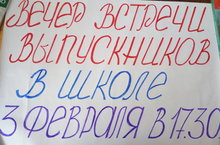 ВЕЧЕР ВСТРЕЧИ
ВЫПУСКНИКОВ
В ШКОЛЕ
3 ФЕВРАЛЯ В 17.30